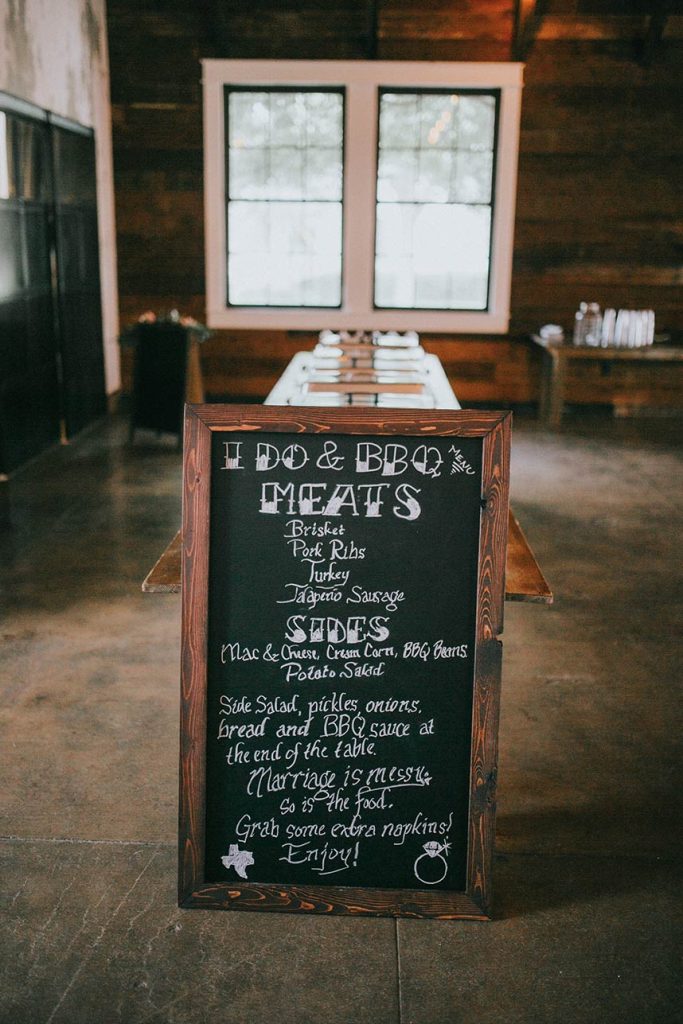 I DO & BBQ MENU
MEATS
Brisket
Pork Ribs
Turkey
Jalapeño Sausage
SIDES
Mac & Cheese, Cream Corn, BBQ Beans
Potato Salad
Side Salad, pickles, onions,
bread and BBQ sauce at
the end of the table.
Marriage is messy.
So is the food.
Grab some extra napkins!
Enjoy!